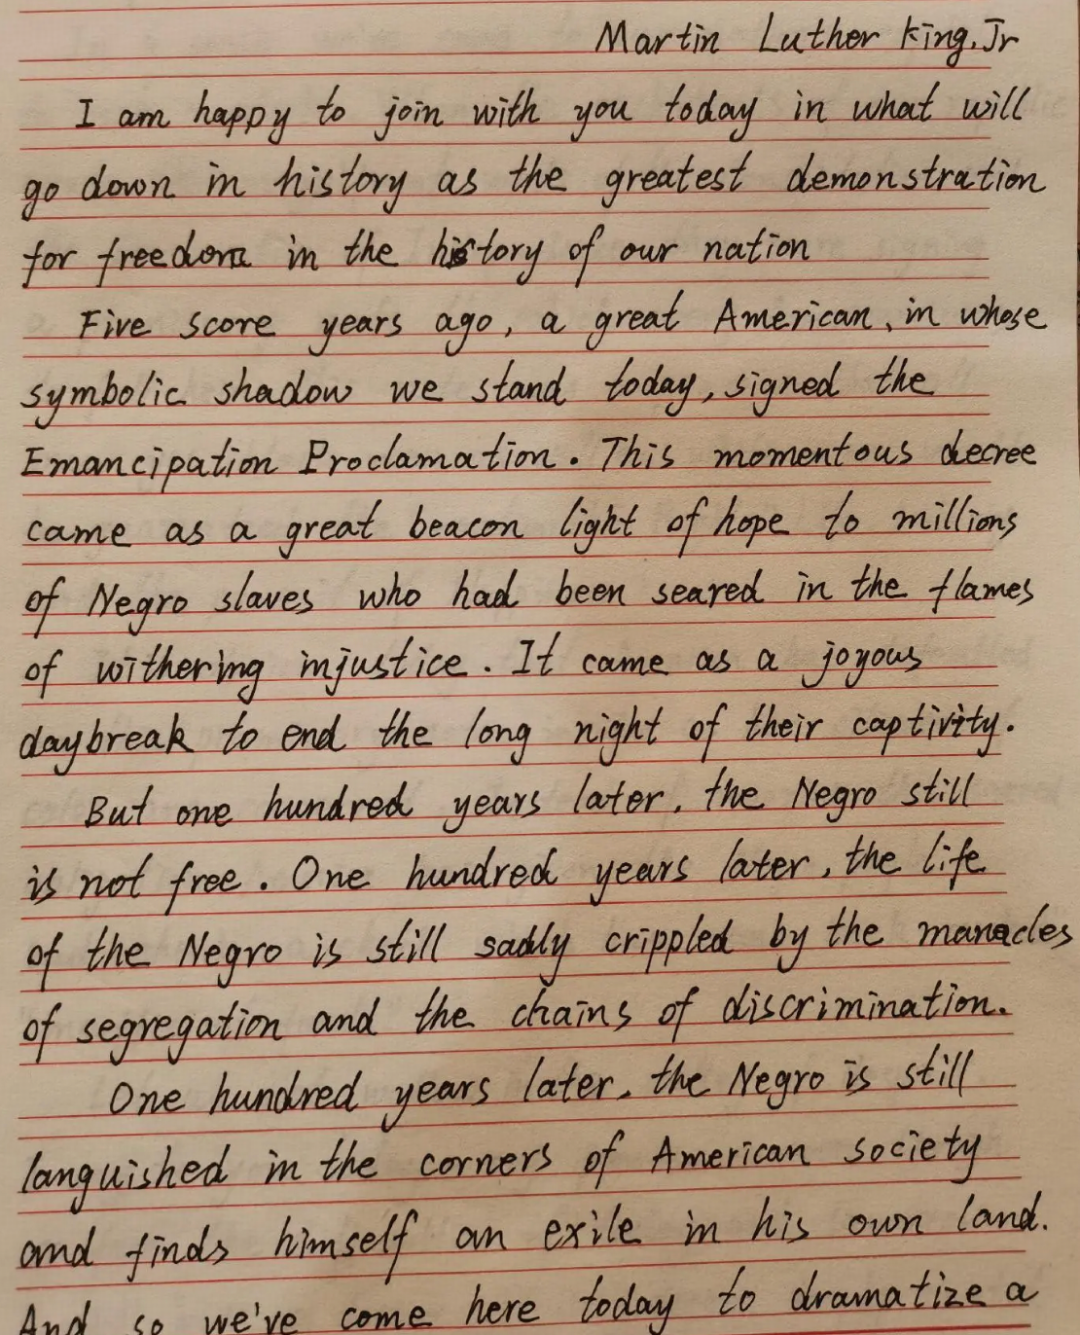 Martin Luther King, Jr
I am happy to join with you today in what will
go down in history as the greatest demonstration
for freedom in the history of our nation
Five score years ago, a great American, in whose
symbolic shadow we stand today, signed the
Emancipation Proclamation. This momentous decree
came as a great beacon light of hope to millions
of Negro slaves who had been seared in the flames
of withering injustice. It came as a joyous
daybreak to end the long night of their captivity.
But one hundred years later, the Negro still
is not free. One hundred years later, the life
of the Negro is still sadly crippled by the manacles
of segregation and the chains of discrimination.
One hundred years later, the Negro is still
languished in the corners of American society
and finds himself an exile in his own land.
And so we've come here today to dramatize a